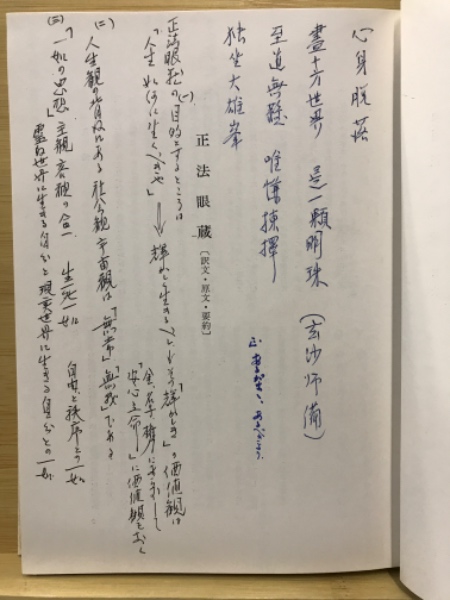 心身脱落
盡十方世界 是一顆明珠 (玄沙師備)
至道無難 唯嫌揀擇
独坐大雄峯
正法眼蔵 〔訳文・原文・要約〕
(一)
正法眼蔵の目的とするところは
「人生如何に生くべきや」 ⇒ 輝かしく生きる
の価値観は
「安心立命」に価値観をおく
(二) 人生観の背後にある社会観宇宙観は「無常」「無我」である
(三)「一如の思想」 主観客観の合一 生死一如 自由と秩序との一如
霊的世界に生きる自分と現実世界に生きる自分との一如